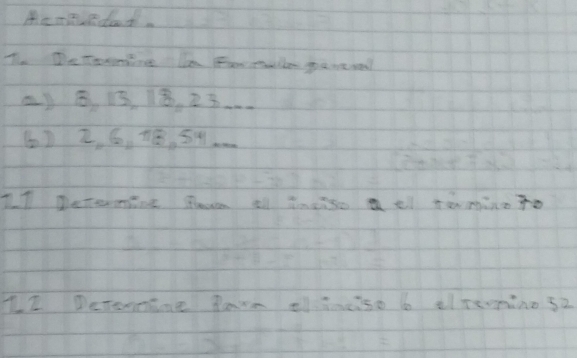 Actividad.
1. Determine la formula general
a) 8, 13, 18, 23....
b) 2, 6, 18, 54...
1.1 Determine Para el inciso a el termino 70
1.2 Determine Para el inciso b el termino 32